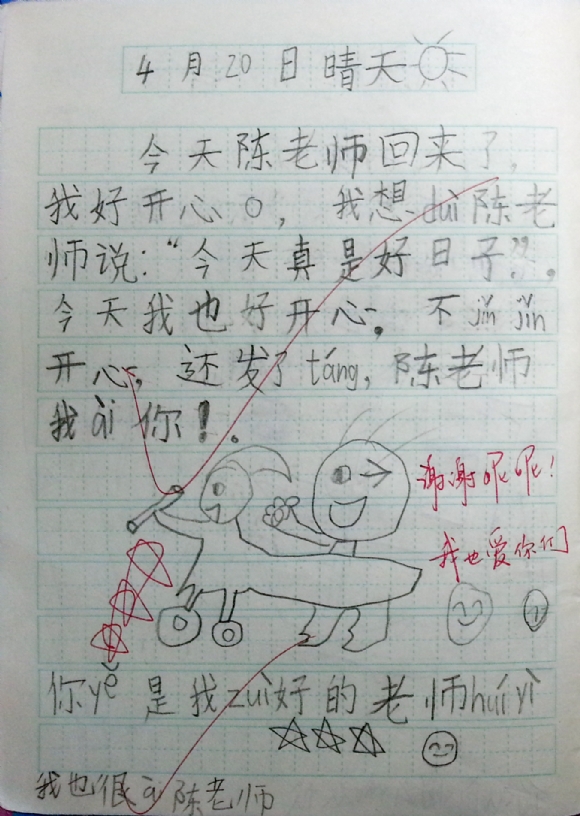 4月20日晴天
今天陈老师回来了,
我好开心o, 我想duì陈老
师说:“今天真是好日子”,
今天我也好开心, 不jǐn jǐn
开心, 还发了táng, 陈老师
我ài你!.
谢谢
我也爱你们
你yě是我zuì好的老师huíyì
我也很ài陈老师